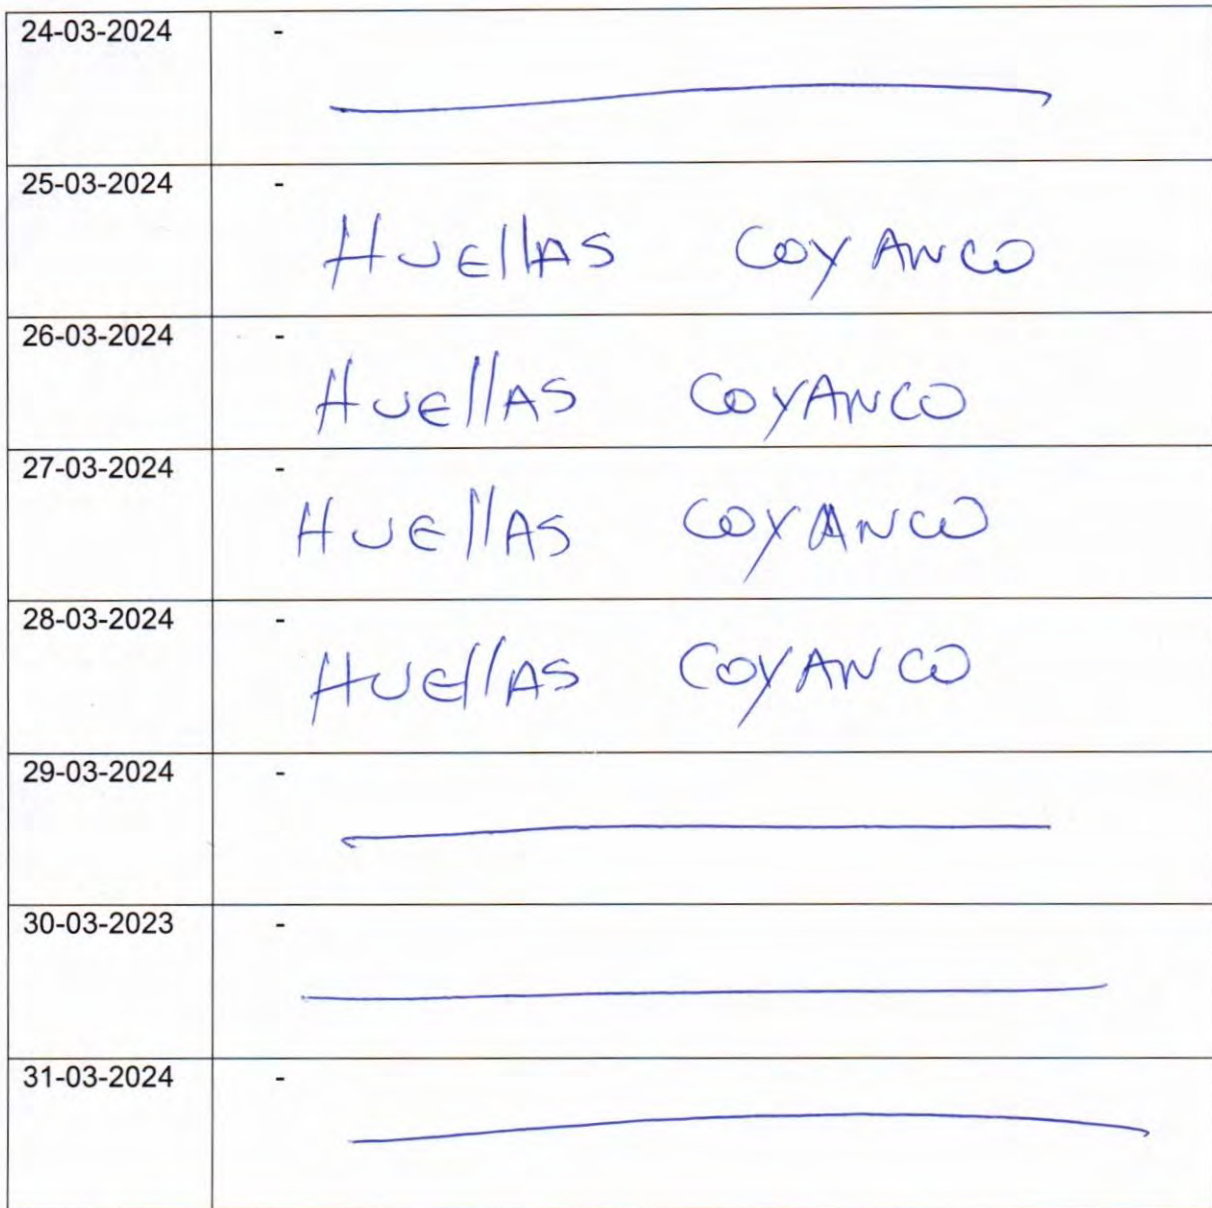 24-03-2024 -
25-03-2024 -
HUEllAS COYANCO
26-03-2024 -
HUEllAS COYANCO
27-03-2024 -
HUEllAS COYANCO
28-03-2024 -
HUEllAS COYANCO
29-03-2024 -
30-03-2023 -
31-03-2024 -